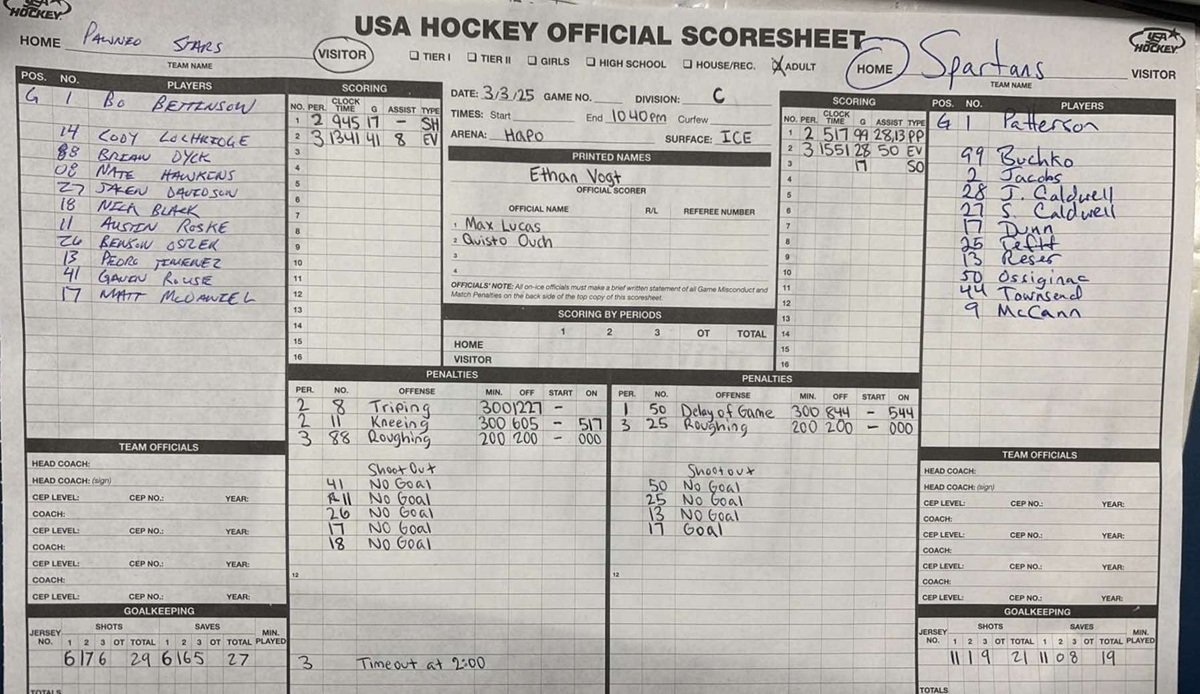 USA HOCKEY
USA HOCKEY OFFICIAL SCORESHEET
USA HOCKEY
HOME PAWNEO STARS VISITOR
TEAM NAME
☐ TIER I ☐ TIER II ☐ GIRLS ☐ HIGH SCHOOL ☐ HOUSE/REC. ☒ ADULT
HOME Spartans VISITOR
TEAM NAME
POS. NO. PLAYERS
G 1 BO BETTENSON
14 CODY LOCHRIDGE
88 BRIAN DYCK
08 NATE HAWKINS
27 JALEN DAVIDSON
18 NICK BLACK
11 AUSTIN ROSKE
26 BENSON
13 PEDRO JIMENEZ
41 GAVEN ROUSE
17 MATT McDANIEL
SCORING
NO. PER. CLOCK TIME G ASSIST TYPE
1 2 945 17 - SH
2 3 1341 41 8 EV
3
4
5
6
7
8
9
10
11
12
13
14
15
16
DATE: 3/3/25 GAME NO. DIVISION: C
TIMES: Start End 1040pm Curfew
ARENA: HAPO SURFACE: ICE
PRINTED NAMES
Ethan Vogt
OFFICIAL SCORER
OFFICIAL NAME R/L REFEREE NUMBER
1 Max Lucas
2 Quisto Ouch
3
4
OFFICIALS' NOTE: All on-ice officials must make a brief written statement of all Game Misconduct and
Match Penalties on the back side of the top copy of this scoresheet.
SCORING BY PERIODS
1 2 3 OT TOTAL
HOME
VISITOR
SCORING
NO. PER. CLOCK TIME G ASSIST TYPE
1 2 517 99 28,13 PP
2 3 1551 28 50 EV
3 17 SO
4
5
6
7
8
9
10
11
12
13
14
15
16
POS. NO. PLAYERS
G 1 Patterson
99 Buchko
2 Jacobs
28 J. Caldwell
27 S. Caldwell
17 Dunn
25 Tefft
13 Reser
50 Ossiginac
44 Townsend
9 McCann
PENALTIES
PER. NO. OFFENSE MIN. OFF START ON
2 8 Triping 300 1227 -
2 11 Kneeing 300 605 - 517
3 88 Roughing 200 200 - 000
Shoot Out
41 No Goal
11 No Goal
26 No Goal
17 No Goal
18 No Goal
12
3 Timeout at 2:00
PENALTIES
PER. NO. OFFENSE MIN. OFF START ON
1 50 Delay of Game 300 844 - 544
3 25 Roughing 200 200 - 000
Shootout
50 No Goal
25 No Goal
13 No Goal
17 Goal
12
TEAM OFFICIALS
HEAD COACH:
HEAD COACH: (sign)
CEP LEVEL: CEP NO.: YEAR:
COACH:
CEP LEVEL: CEP NO.: YEAR:
COACH:
CEP LEVEL: CEP NO.: YEAR:
COACH:
CEP LEVEL: CEP NO.: YEAR:
GOALKEEPING
SHOTS SAVES
JERSEY NO. 1 2 3 OT TOTAL 1 2 3 OT TOTAL MIN. PLAYED
6 17 6 29 6 16 5 27
TOTALS
TEAM OFFICIALS
HEAD COACH:
HEAD COACH: (sign)
CEP LEVEL: CEP NO.: YEAR:
COACH:
CEP LEVEL: CEP NO.: YEAR:
COACH:
CEP LEVEL: CEP NO.: YEAR:
COACH:
CEP LEVEL: CEP NO.: YEAR:
GOALKEEPING
SHOTS SAVES
JERSEY NO. 1 2 3 OT TOTAL 1 2 3 OT TOTAL MIN. PLAYED
11 1 9 21 11 0 8 19
TOTALS